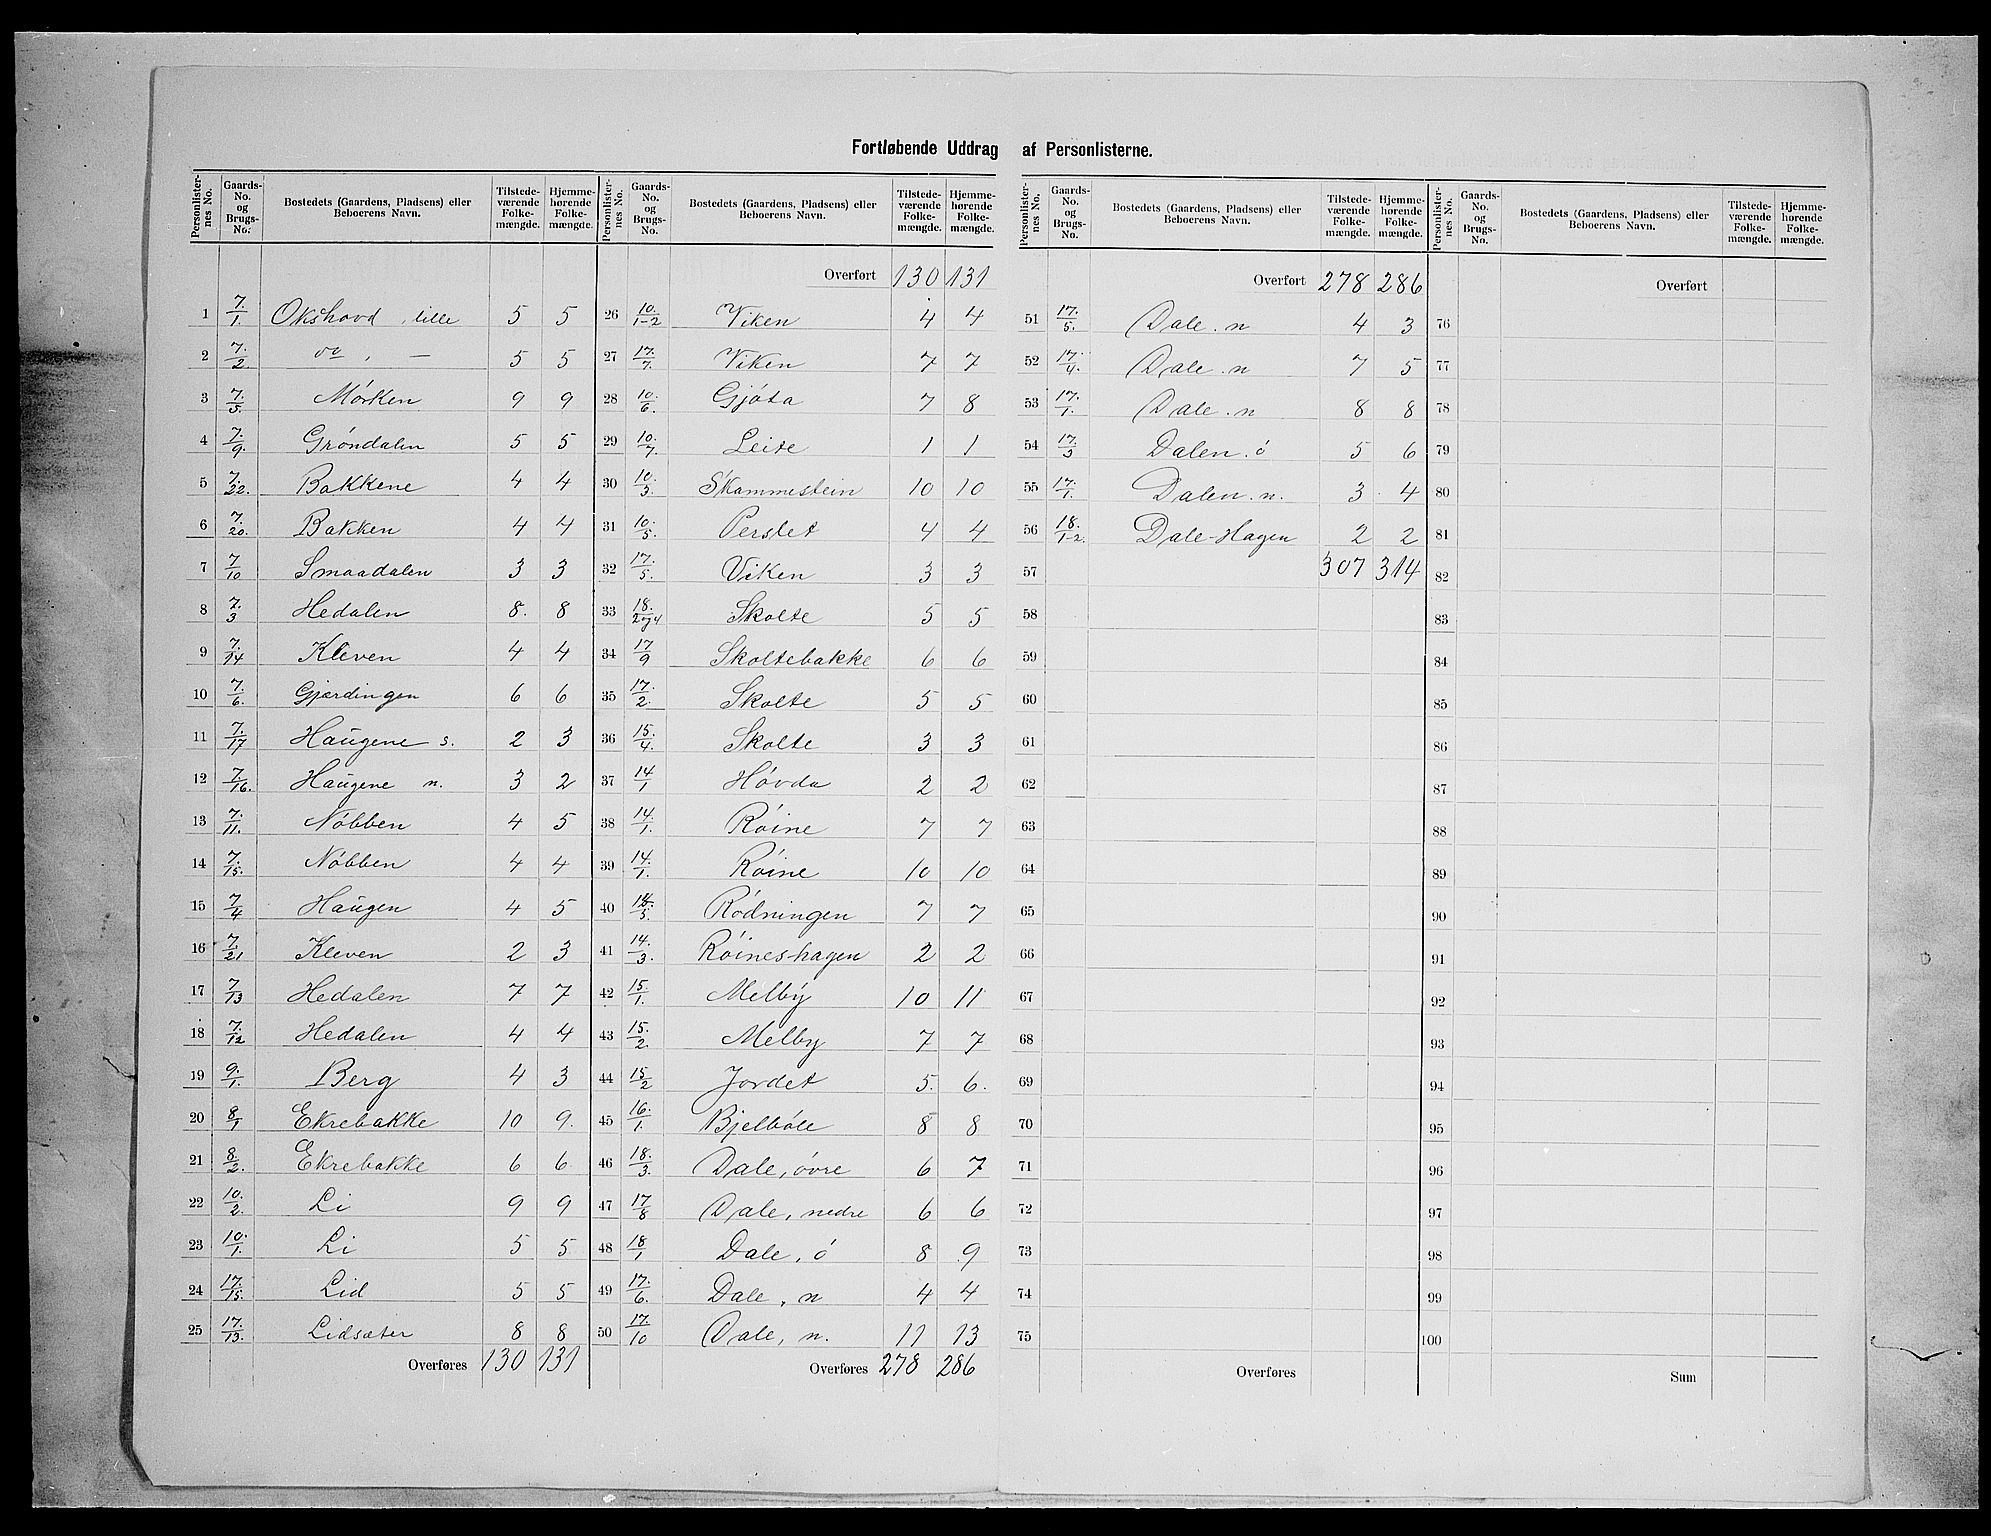 Fortløbende Uddrag af Personlisterne.
Personlisternes No. | Gaards-No. og Brugs-No. | Bostedets (Gaardens, Pladsens) eller Beboerens Navn. | Tilstedeværende Folkemængde. | Hjemmehørende Folkemængde.
1 7./1. Okshovd, lille 5 5
2 7./2. do, — 5 5
3 7./5. Mørken 9 9
4 7./9. Gróndalen 5 5
5 7./22. Bakkene 4 4
6 7./20. Bakken 4 4
7 7/10 Smaadalen 3 3
8 7./3 Hedalen 8. 8
9 7./14 Kleven 4 4
10 7./6. Gjærdingen 6 6
11 7./17 Haugene s. 2 3
12 7./16. Haugene n. 3 2
13 7./11. Nóbben 4 5
14 7./15. Nóbben 4 4
15 7/4 Haugen 4 5
16 7./21 Kleven 2 3
17 7/13 Hedalen 7 7
18 7./12 Hedalen 4 4
19 9./1. Berg 4 3
20 8/1 Ekrebakke 10 9.
21 8/2. Ekrebakke 6 6
22 10./2. Li 9 9
23 10./1. Li 5 5
24 17./15. Lid 5 5
25 17./13. Lidsæter 8 8
Overføres 130 131
Personlisternes No. | Gaards-No. og Brugs-No. | Bostedets (Gaardens, Pladsens) eller Beboerens Navn. | Tilstedeværende Folkemængde. | Hjemmehørende Folkemængde.
Overført 130 131
26 10./1-2 Viken 4 4
27 17./7. Viken 7 7
28 10./6. Gjóta 7 8
29 10./7. Leite 1 1
30 10./3. Skammestein 10 10
31 10./5. Perslet 4 4
32 17./5. Viken 3 3
33 18./2og4 Skolte 5 5
34 17/9 Skoltebakke 6 6
35 17./2. Skolte 5 5
36 15./4. Skolte 3 3
37 14/1 Hóvda 2 2
38 14./1. Róine 7 7
39 14./1. Róine 10 10
40 /5. Ródningen 7 7
41 14./3. Róineshagen 2 2
42 15./1. Melby 10 11
43 15./2. Melby 7 7
44 15/2 Jordet 5. 6.
45 16./1. Bjelbóle 8 8
46 18./3. Dale, óvre 6 7
47 17/8 Dale, nedre 6 6
48 18/1 Dale, ó 8 9
49 17./6. Dale, n 4 4
50 17./10 Dale, n. 11 13
Overføres 278 286
Personlisternes No. | Gaards-No. og Brugs-No. | Bostedets (Gaardens, Pladsens) eller Beboerens Navn. | Tilstedeværende Folkemængde. | Hjemmehørende Folkemængde.
Overført 278 286
51 17./5. Dale. n 4 3
52 17/4. Dale. n 7 5
53 17./1. Dale. n 8 8
54 17./3 Dalen. ó 5 6
55 17./1. Dalen. n. 3 4
56 18./1-2. Dale-Hagen 2 2
57 307 314
58
59
60
61
62
63
64
65
66
67
68
69
70
71
72
73
74
75
Overføres
Personlisternes No. | Gaards-No. og Brugs-No. | Bostedets (Gaardens, Pladsens) eller Beboerens Navn. | Tilstedeværende Folkemængde. | Hjemmehørende Folkemængde.
Overført
76
77
78
79
80
81
82
83
84
85
86
87
88
89
90
91
92
93
94
95
96
97
98
99
100
Sum